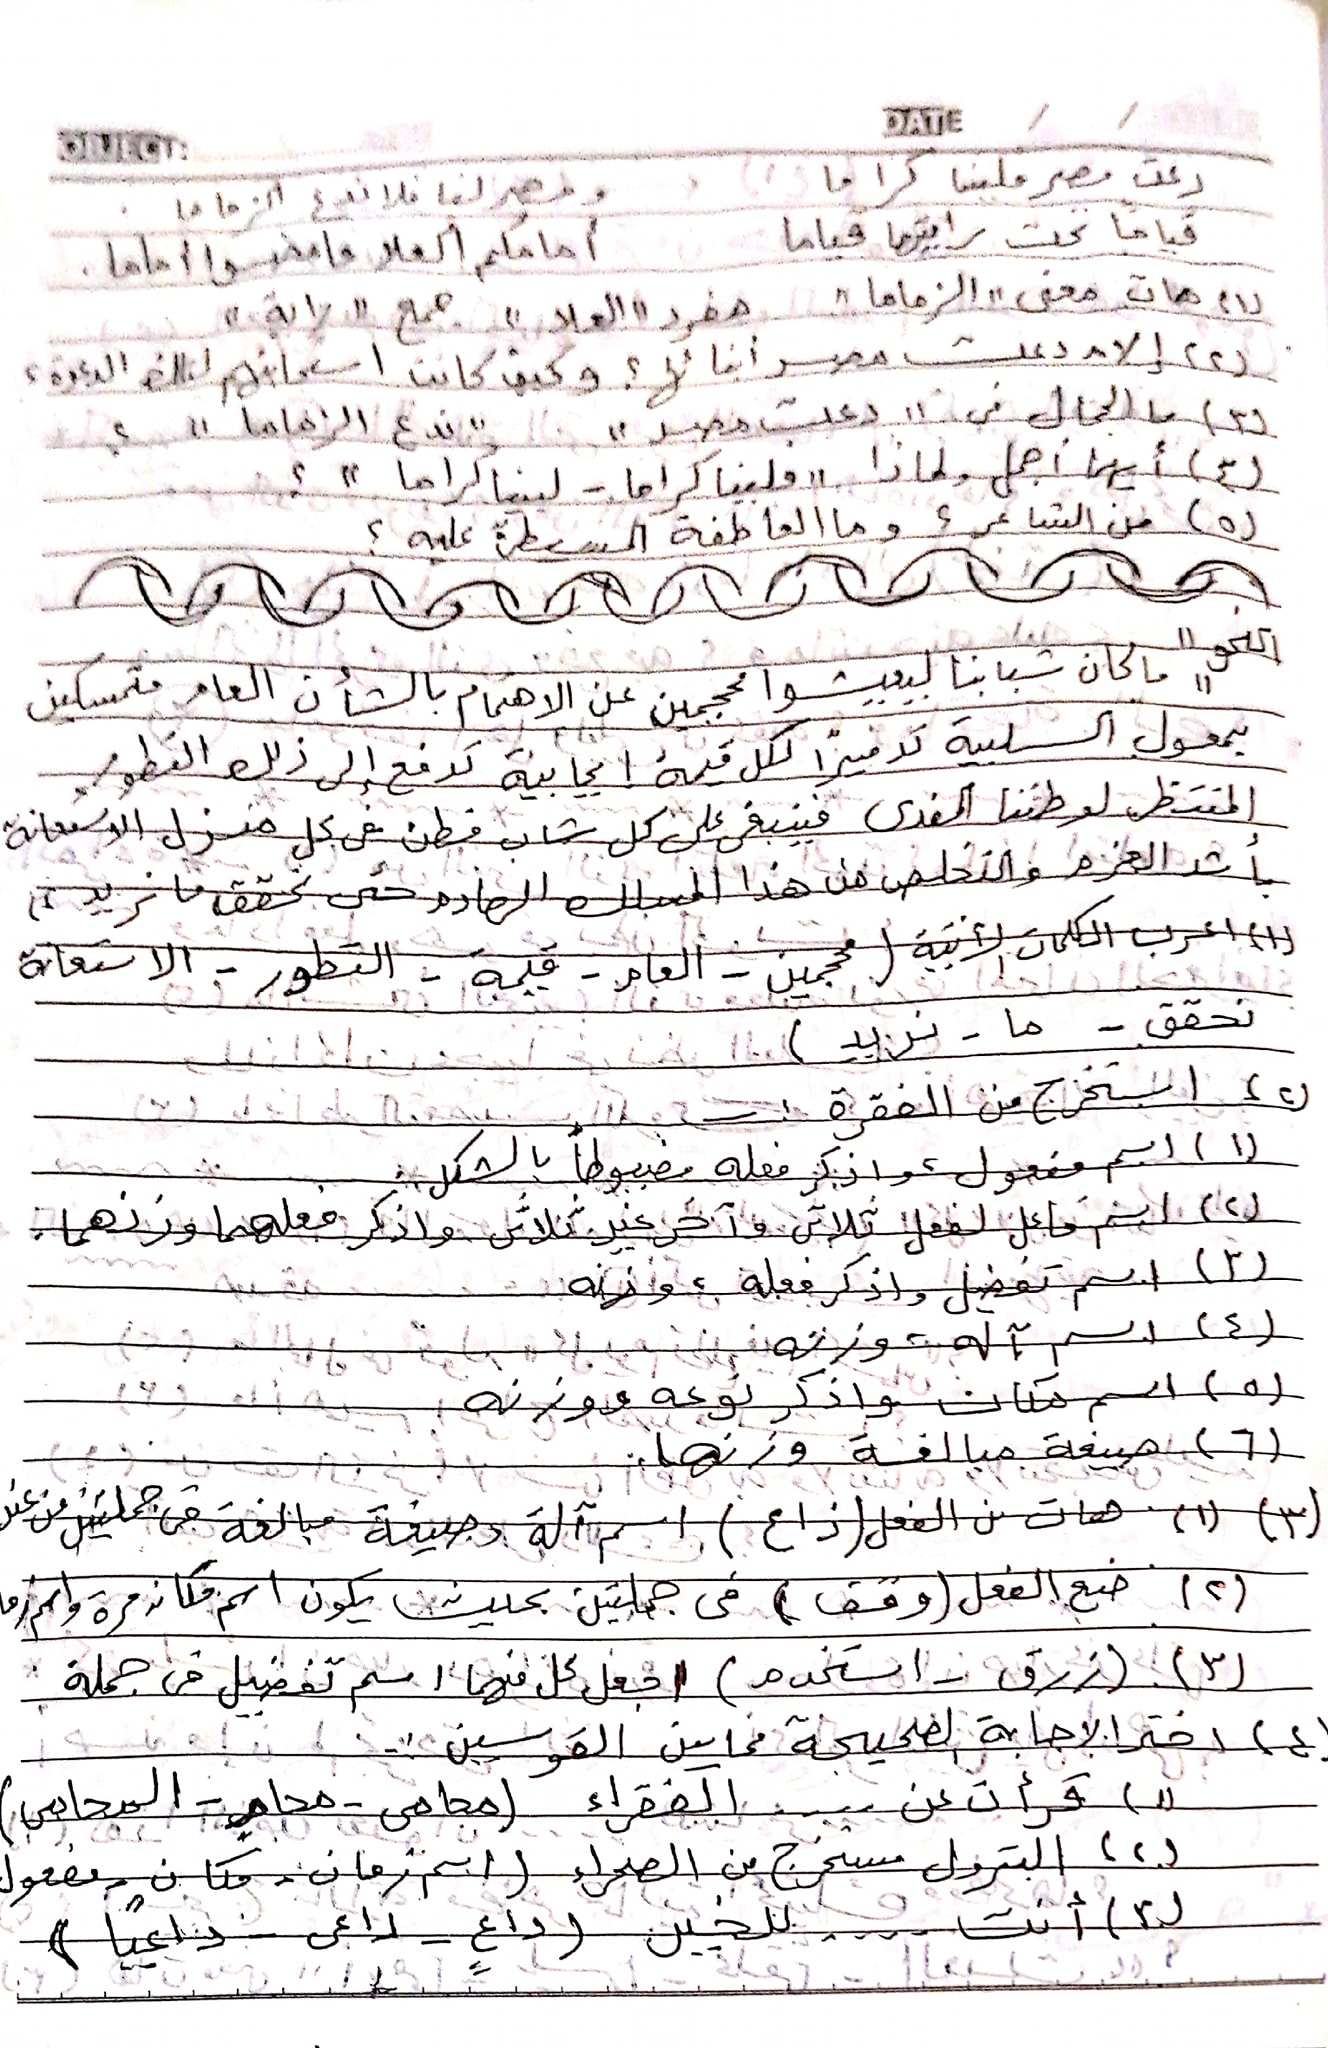 OBJECT: DATE / /
دعت مصر فلبينا كراما ومصر لنا فلا ندع الزماما .
قياما تحت رايتها قياما أمامكم العلا فامضوا أماما .
(١) هات معنى "الزماما" مفرد "العلا" جمع "راية"
(٢) إلام دعت مصر أبنائها ؟ وكيف كانت استجابتهم لتلك الدعوة ؟
(٣) ما الجمال في "دعت مصر" "ندع الزماما" ؟
(٤) أيهما أجمل ولماذا "فلبينا كراما - لبينا كراما" ؟
(٥) من الشاعر ؟ وما العاطفة المسيطرة عليه ؟
النحو
" ما كان شبابنا ليعيشوا محجمين عن الاهتمام بالشأن العام متمسكين
بمعول السلبية تدميرًا لكل قيمة ايجابية تدفع إلى ذلك التطور
المنتظر لوطننا المفدى فينبغى على كل شاب فطن فى كل منزل الاستعانة
بأشد العزم والتخلص من هذا المسلك الهادم حتى نحقق ما نريد "
(١) اعرب الكلمات الأتية (محجمين - العام - قيمة - التطور - الاستعانة
نحقق - ما - نريد )
(٢) استخرج من الفقرة :-
(١) اسم مفعول ، واذكر فعله مضبوطاً بالشكل .
(٢) اسم فاعل لفعل ثلاثى وآخر غير ثلاثى واذكر فعلهما وزنهما .
(٣) اسم تفضيل واذكر فعله ، وزنه
(٤) اسم آلة ، وزنه
(٥) اسم مكان واذكر نوعه ووزنه
(٦) صيغة مبالغة وزنها .
(٣) (١) هات من الفعل (ذاع ) اسم آلة وصيغة مبالغة فى جملتين من عند
(٢) ضع الفعل (وقف) فى جملتين بحيث يكون اسم مكان مرة واسم زما
(٣) (زرق - استخدم ) اجعل كل منهما اسم تفضيل فى جملة
(٤) اختر الإجابة الصحيحة مما بين القوسين :-
(١) قرأت عن ..... الفقراء (محامى - محامٍ - المحامى)
(٢) البترول مستخرج من الصحراء (اسم زمان - مكان - مفعول
(٣) أنت ..... للخير (داعٍ - داعى - داعيًا )